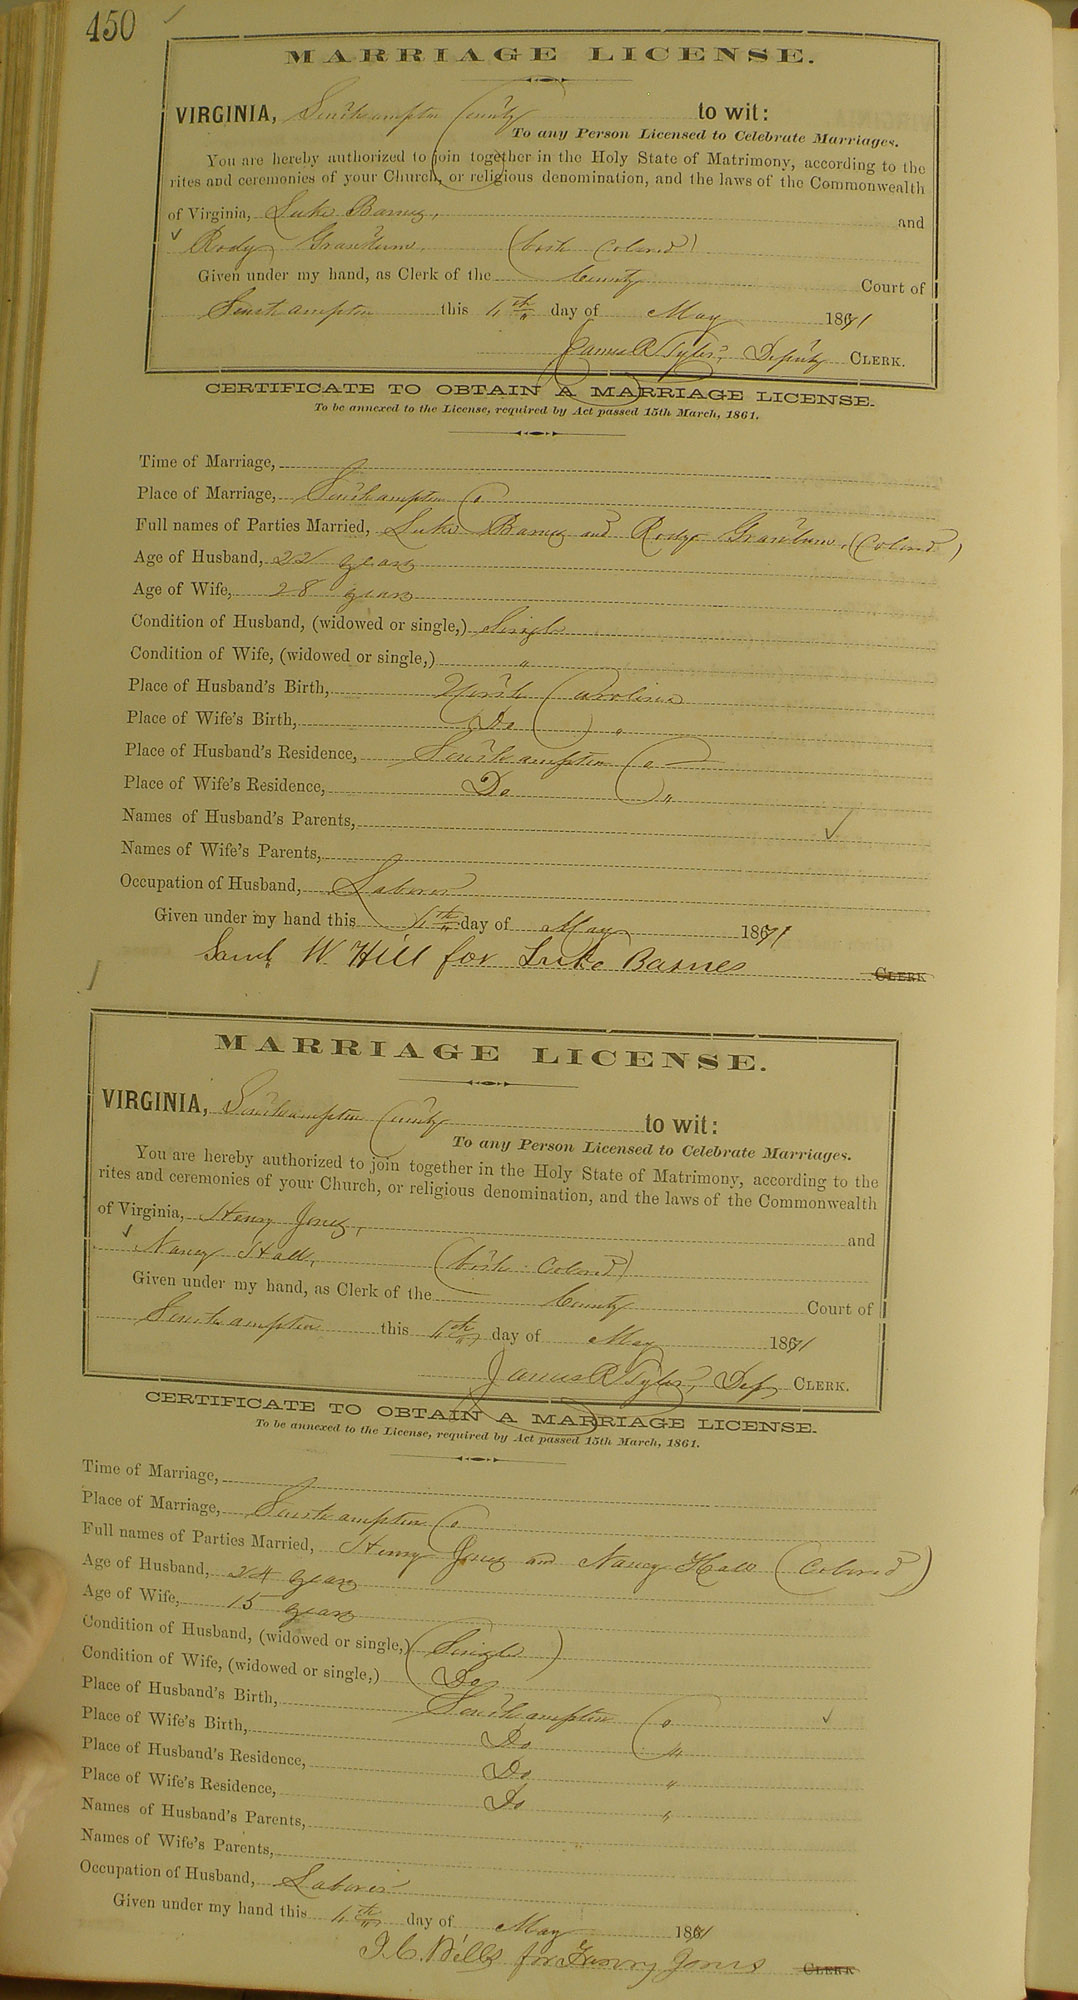 450
MARRIAGE LICENSE.
VIRGINIA, Southampton County to wit:
To any Person Licensed to Celebrate Marriages.
You are hereby authorized to join together in the Holy State of Matrimony, according to the
rites and ceremonies of your Church, or religious denomination, and the laws of the Commonwealth
of Virginia, Luke Barnes, and
Rody (both Colored)
Given under my hand, as Clerk of the County Court of
Southampton this 4th day of May 1871
James R Tyler, Deputy CLERK.
CERTIFICATE TO OBTAIN A MARRIAGE LICENSE.
To be annexed to the License, required by Act passed 15th March, 1861.
Time of Marriage,
Place of Marriage, Southampton Co
Full names of Parties Married, Luke Barnes and Rody (Colored)
Age of Husband, 22 years
Age of Wife, 28 years
Condition of Husband, (widowed or single,) Single
Condition of Wife, (widowed or single,) "
Place of Husband's Birth, North Carolina
Place of Wife's Birth, Do "
Place of Husband's Residence, Southampton Co
Place of Wife's Residence, Do "
Names of Husband's Parents,
Names of Wife's Parents,
Occupation of Husband, Laborer
Given under my hand this 4th day of May 1871
Saml W. Hill for Luke Barnes CLERK
MARRIAGE LICENSE.
VIRGINIA, Southampton County to wit:
To any Person Licensed to Celebrate Marriages.
You are hereby authorized to join together in the Holy State of Matrimony, according to the
rites and ceremonies of your Church, or religious denomination, and the laws of the Commonwealth
of Virginia, Henry Jones, and
Nancy Hall, (both Colored)
Given under my hand, as Clerk of the County Court of
Southampton this 4th day of May 1871
James R Tyler, Dep CLERK.
CERTIFICATE TO OBTAIN A MARRIAGE LICENSE.
To be annexed to the License, required by Act passed 15th March, 1861.
Time of Marriage,
Place of Marriage, Southampton Co
Full names of Parties Married, Henry Jones and Nancy Hall (Colored)
Age of Husband, 24 years
Age of Wife, 15 years
Condition of Husband, (widowed or single,) Single
Condition of Wife, (widowed or single,) Do
Place of Husband's Birth, Southampton Co
Place of Wife's Birth, Do "
Place of Husband's Residence, Do "
Place of Wife's Residence, Do "
Names of Husband's Parents,
Names of Wife's Parents,
Occupation of Husband, Laborer
Given under my hand this 4th day of May 1871
J. C. Bells for Henry Jones CLERK